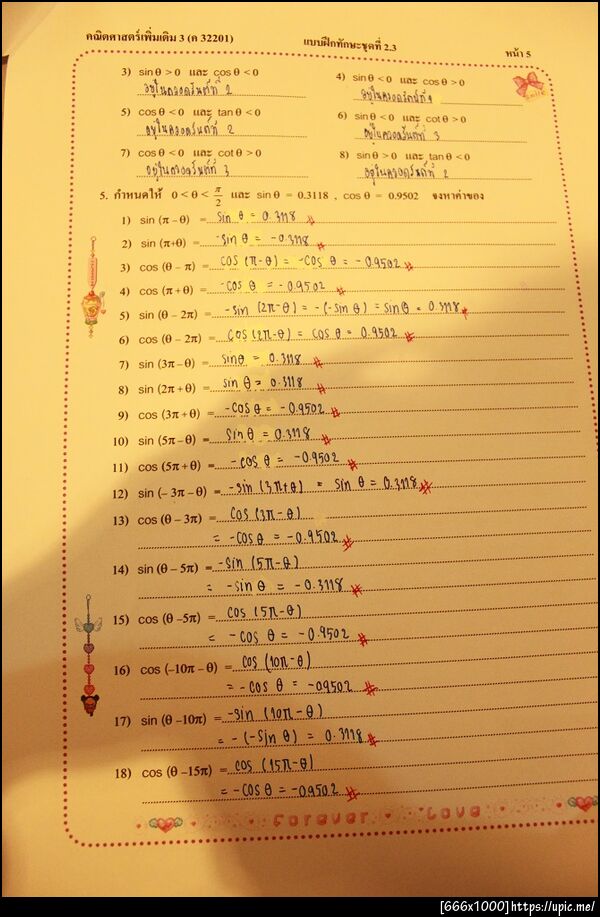 คณิตศาสตร์เพิ่มเติม 3 (ค 32201) แบบฝึกทักษะชุดที่ 2.3 หน้า 5
3) sin θ > 0 และ cos θ < 0 4) sin θ < 0 และ cos θ > 0
อยู่ในควอดรันต์ที่ 2 อยู่ในควอดรันต์ที่ 4
5) cos θ < 0 และ tan θ < 0 6) sin θ < 0 และ cot θ > 0
อยู่ในควอดรันต์ที่ 2 อยู่ในควอดรันต์ที่ 3
7) cos θ < 0 และ cot θ > 0 8) sin θ > 0 และ tan θ < 0
อยู่ในควอดรันต์ที่ 3 อยู่ในควอดรันต์ที่ 2
5. กำหนดให้ 0 < θ < π/2 และ sin θ = 0.3118 , cos θ = 0.9502 จงหาค่าของ
1) sin (π – θ) = sin θ = 0.3118
2) sin (π+θ) = -sin θ = -0.3118
3) cos (θ – π) = cos (π-θ) = -cos θ = -0.9502
4) cos (π + θ) = -cos θ = -0.9502
5) sin (θ – 2π) = -sin (2π-θ) = -(-sin θ) = sin θ = 0.3118
6) cos (θ – 2π) = cos (2π-θ) = cos θ = 0.9502
7) sin (3π – θ) = sin θ = 0.3118
8) sin (2π + θ) = sin θ = 0.3118
9) cos (3π + θ) = -cos θ = -0.9502
10) sin (5π – θ) = sin θ = 0.3118
11) cos (5π + θ) = -cos θ = -0.9502
12) sin (– 3π – θ) = -sin (3π+θ) = sin θ = 0.3118
13) cos (θ – 3π) = cos (3π-θ)
= -cos θ = -0.9502
14) sin (θ – 5π) = -sin (5π-θ)
= -sin θ = -0.3118
15) cos (θ –5π) = cos (5π-θ)
= -cos θ = -0.9502
16) cos (–10π – θ) = cos (10π-θ)
= -cos θ = -0.9502
17) sin (θ –10π) = -sin (10π-θ)
= -(-sin θ) = 0.3118
18) cos (θ –15π) = cos (15π-θ)
= -cos θ = -0.9502
Forever Love
[666x1000]https://upic.me/